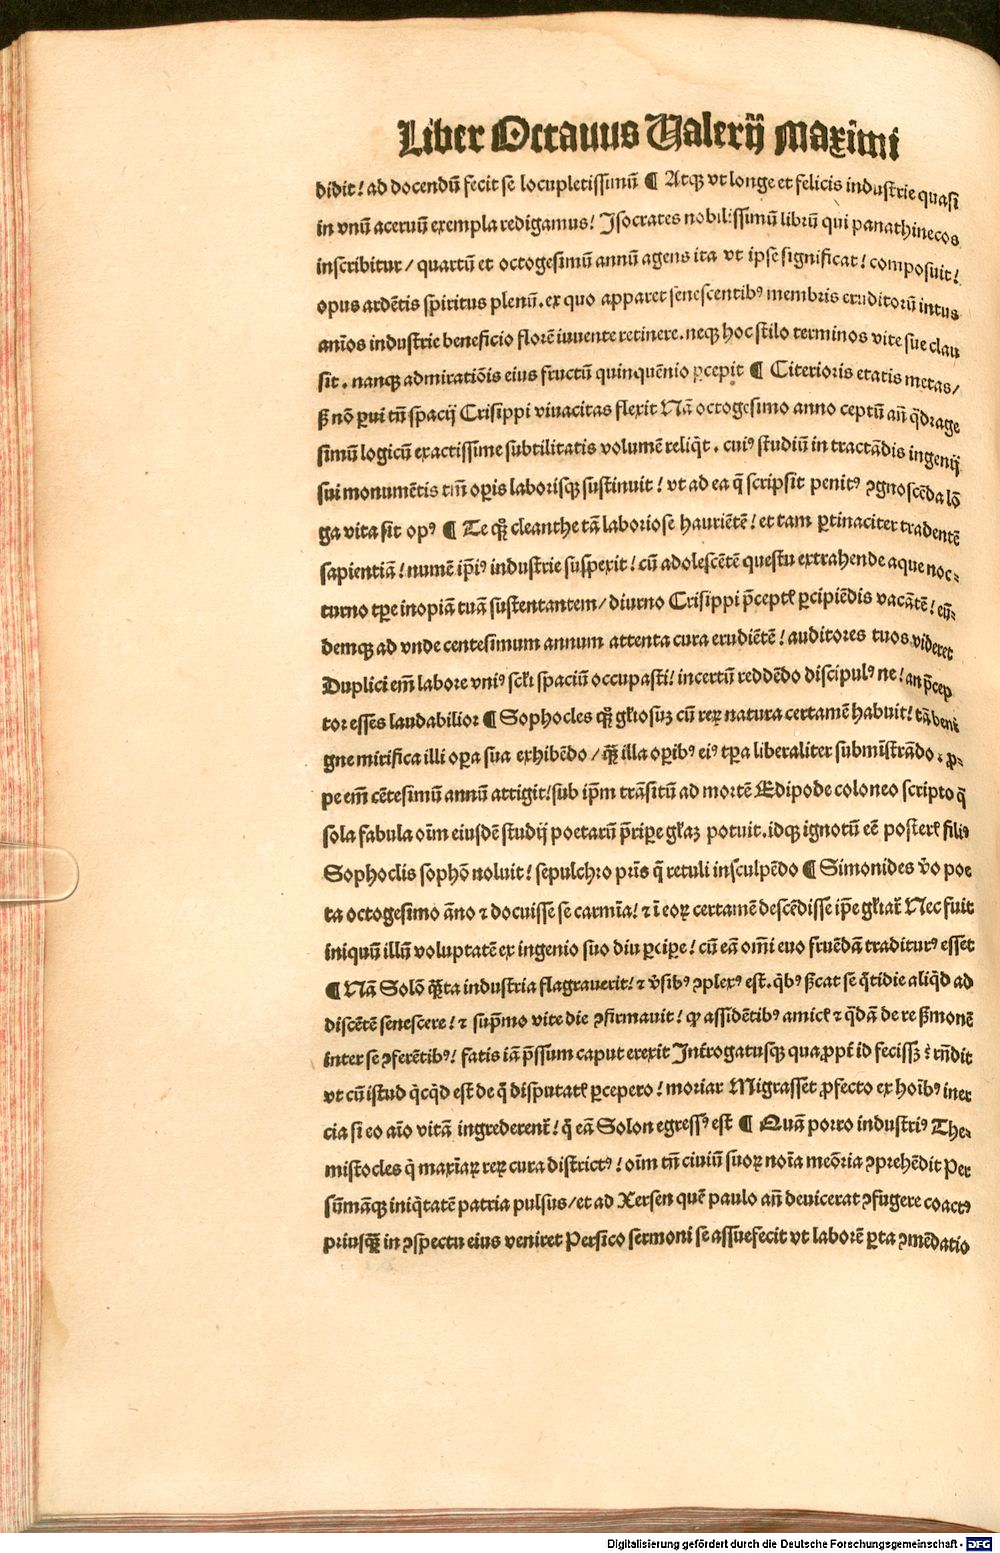 Liber Octauus Ualerij Maximi
didit! ad docendū fecit se locupletissimū ¶ Atqꝫ vt longe et felicis industrie quasi
in vnū aceruū exempla redigamus! Isocrates nobilissimū librū qui panathinecos
inscribitur / quartū et octogesimū annū agens ita vt ipse significat! composuit!
opus ardētis spiritus plenū. ex quo apparet senescentibꝰ membris eruditorū intus
anīos industrie beneficio florē iuuente retinere. neqꝫ hoc stilo terminos vite sue clau
sit. nanqꝫ admiratiōis eius fructū quinquēnio ꝑcepit ¶ Citerioris etatis metas /
ß nō ꝑui tn̄ spacij Crisippi viuacitas flexit Nā octogesimo anno ceptū an̄ q̄drage
simū logicū exactissime subtilitatis volumē reliq̇t. cuiꝰ studiū in tractādis ingenij
sui monumētis tm̄ oꝑis laborisqꝫ sustinuit! vt ad ea q̄ scripsit penitꝰ ꝯgnoscēda lō
ga vita sit opꝰ ¶ Te qꝫ̄ cleanthe tā laboriose hauriētē! et tam ꝑtinaciter tradentē
sapientiā! numē ip̄iꝰ industrie suspexit! cū adolescētē questu extrahende aque noc-
turno tꝑe inopiā tuā sustentantem / diurno Crisippi p̄ceptꝭ ꝑcipiēdis vacātē! eū-
demqꝫ ad vnde centesimum annum attenta cura erudiētē! auditores tuos videret
Duplici em̄ labore vniꝰ secli spaciū occupasti! incertū reddēdo discipulꝰ ne! an p̄cep
tor esses laudabilior ¶ Sophocles qꝫ̄ gl̄iosuꝫ cū reꝝ natura certamē habuit! tā beni
gne mirifica illi oꝑa sua exhibēdo / qꝫ̄ illa oꝑibꝰ eiꝰ tꝑa liberaliter submīstrādo. ꝓ-
pe em̄ cētesimū annū attigit! sub ip̄m trāsitū ad mortē Edipode coloneo scripto q̄
sola fabula oīm eiusdē studij poetarū p̄riꝑe gl̄aꝫ potuit. idqꝫ ignotū eē posterꝭ filiꝰ
Sophoclis sophō noluit! sepulchro pr̄is q̄ retuli insculpēdo ¶ Simonides v̄o poe
ta octogesimo āno ⁊ docuisse se carmīa! ⁊ ī eoꝝ certamē descēdisse ip̄e gl̄iat̄ Nec fuit
iniquū illū voluptatē ex ingenio suo diu ꝑcipe! cū eā om̄i euo fruēdā traditurꝰ esset
¶ Nā Solō qꝫ̄ta industria flagrauerit! ⁊ v̄sibꝰ ꝯplexꝰ est. q̇bꝰ ß̄cat se q̄tidie aliq̇d ad
discētē senescere! ⁊ sup̄mo vite die ꝯfirmauit! ꝙ assidētibꝰ amicꝭ ⁊ q̄dā de re ß̄monē
inter se ꝯferētibꝰ! fatis iā p̄ssum caput erexit Int̄rogatusqꝫ quaꝓpt̄ id fecissꝫ: rn̄dit
vt cū istud q̇cq̇d est de q̄ disputatꝭ ꝑcepero! moriar Migrasset ꝓfecto ex hoībꝰ iner
cia si eo aīo vitā ingrederent̄! q̄ eā Solon egressꝰ est ¶ Quā porro industriꝰ The-
mistocles q̇ maxīaꝝ reꝝ cura districtꝰ! oīm tn̄ ciuiū suoꝝ noīa meōria ꝯprehēdit Per
sūmāqꝫ iniq̇tatē patria pulsus / et ad Xersen quē paulo an̄ deuicerat ꝯfugere coactꝰ
priusqꝫ̄ in ꝯspectu eius veniret Persico sermoni se assuefecit vt laborē ꝑta ꝯmēdatio
Digitalisierung gefördert durch die Deutsche Forschungsgemeinschaft - DFG